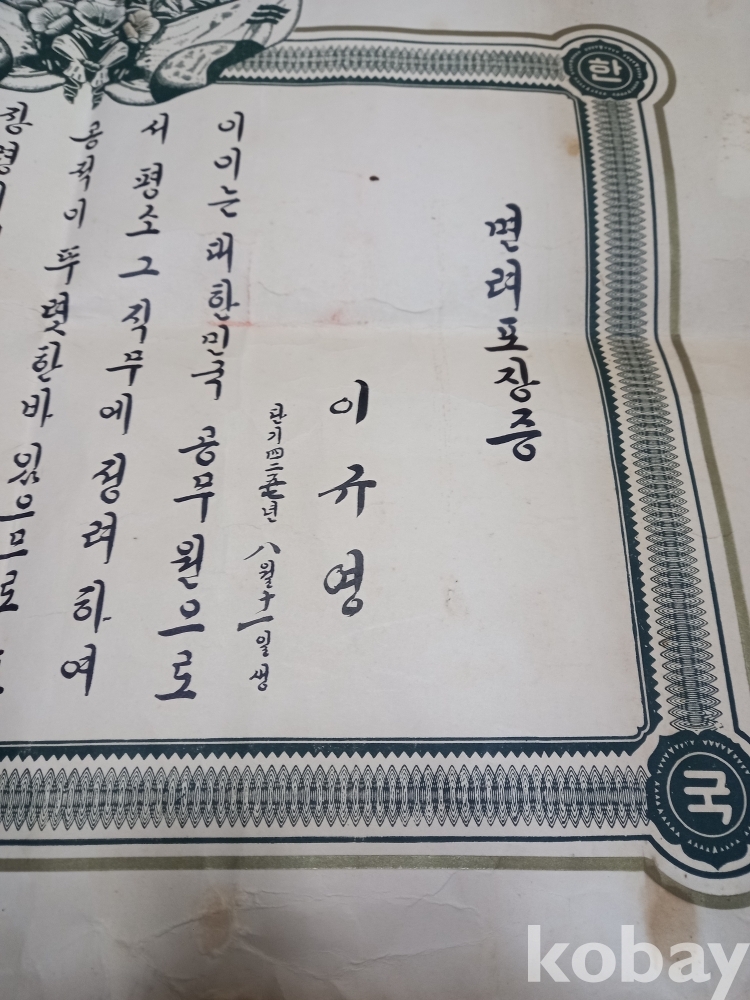 한
면려포장증
이규영
八월十一일생
이이는 대한민국 공무원으로
서 평소 그 직무에 정려하여
공적이 뚜렷한바 있으므로
국
kobay